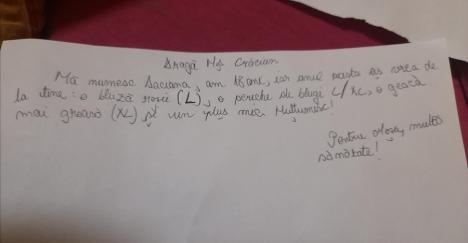 Dragă Moș Crăciun
Mă numesc Daciana, am 18 ani, iar anul acesta aș vrea de
la tine: o bluză roșie (L), o pereche de blugi L/XL, o geacă
mai groasă (XL) și un pluș mic. Mulțumesc!
Pentru Moșu, multă
sănătate!